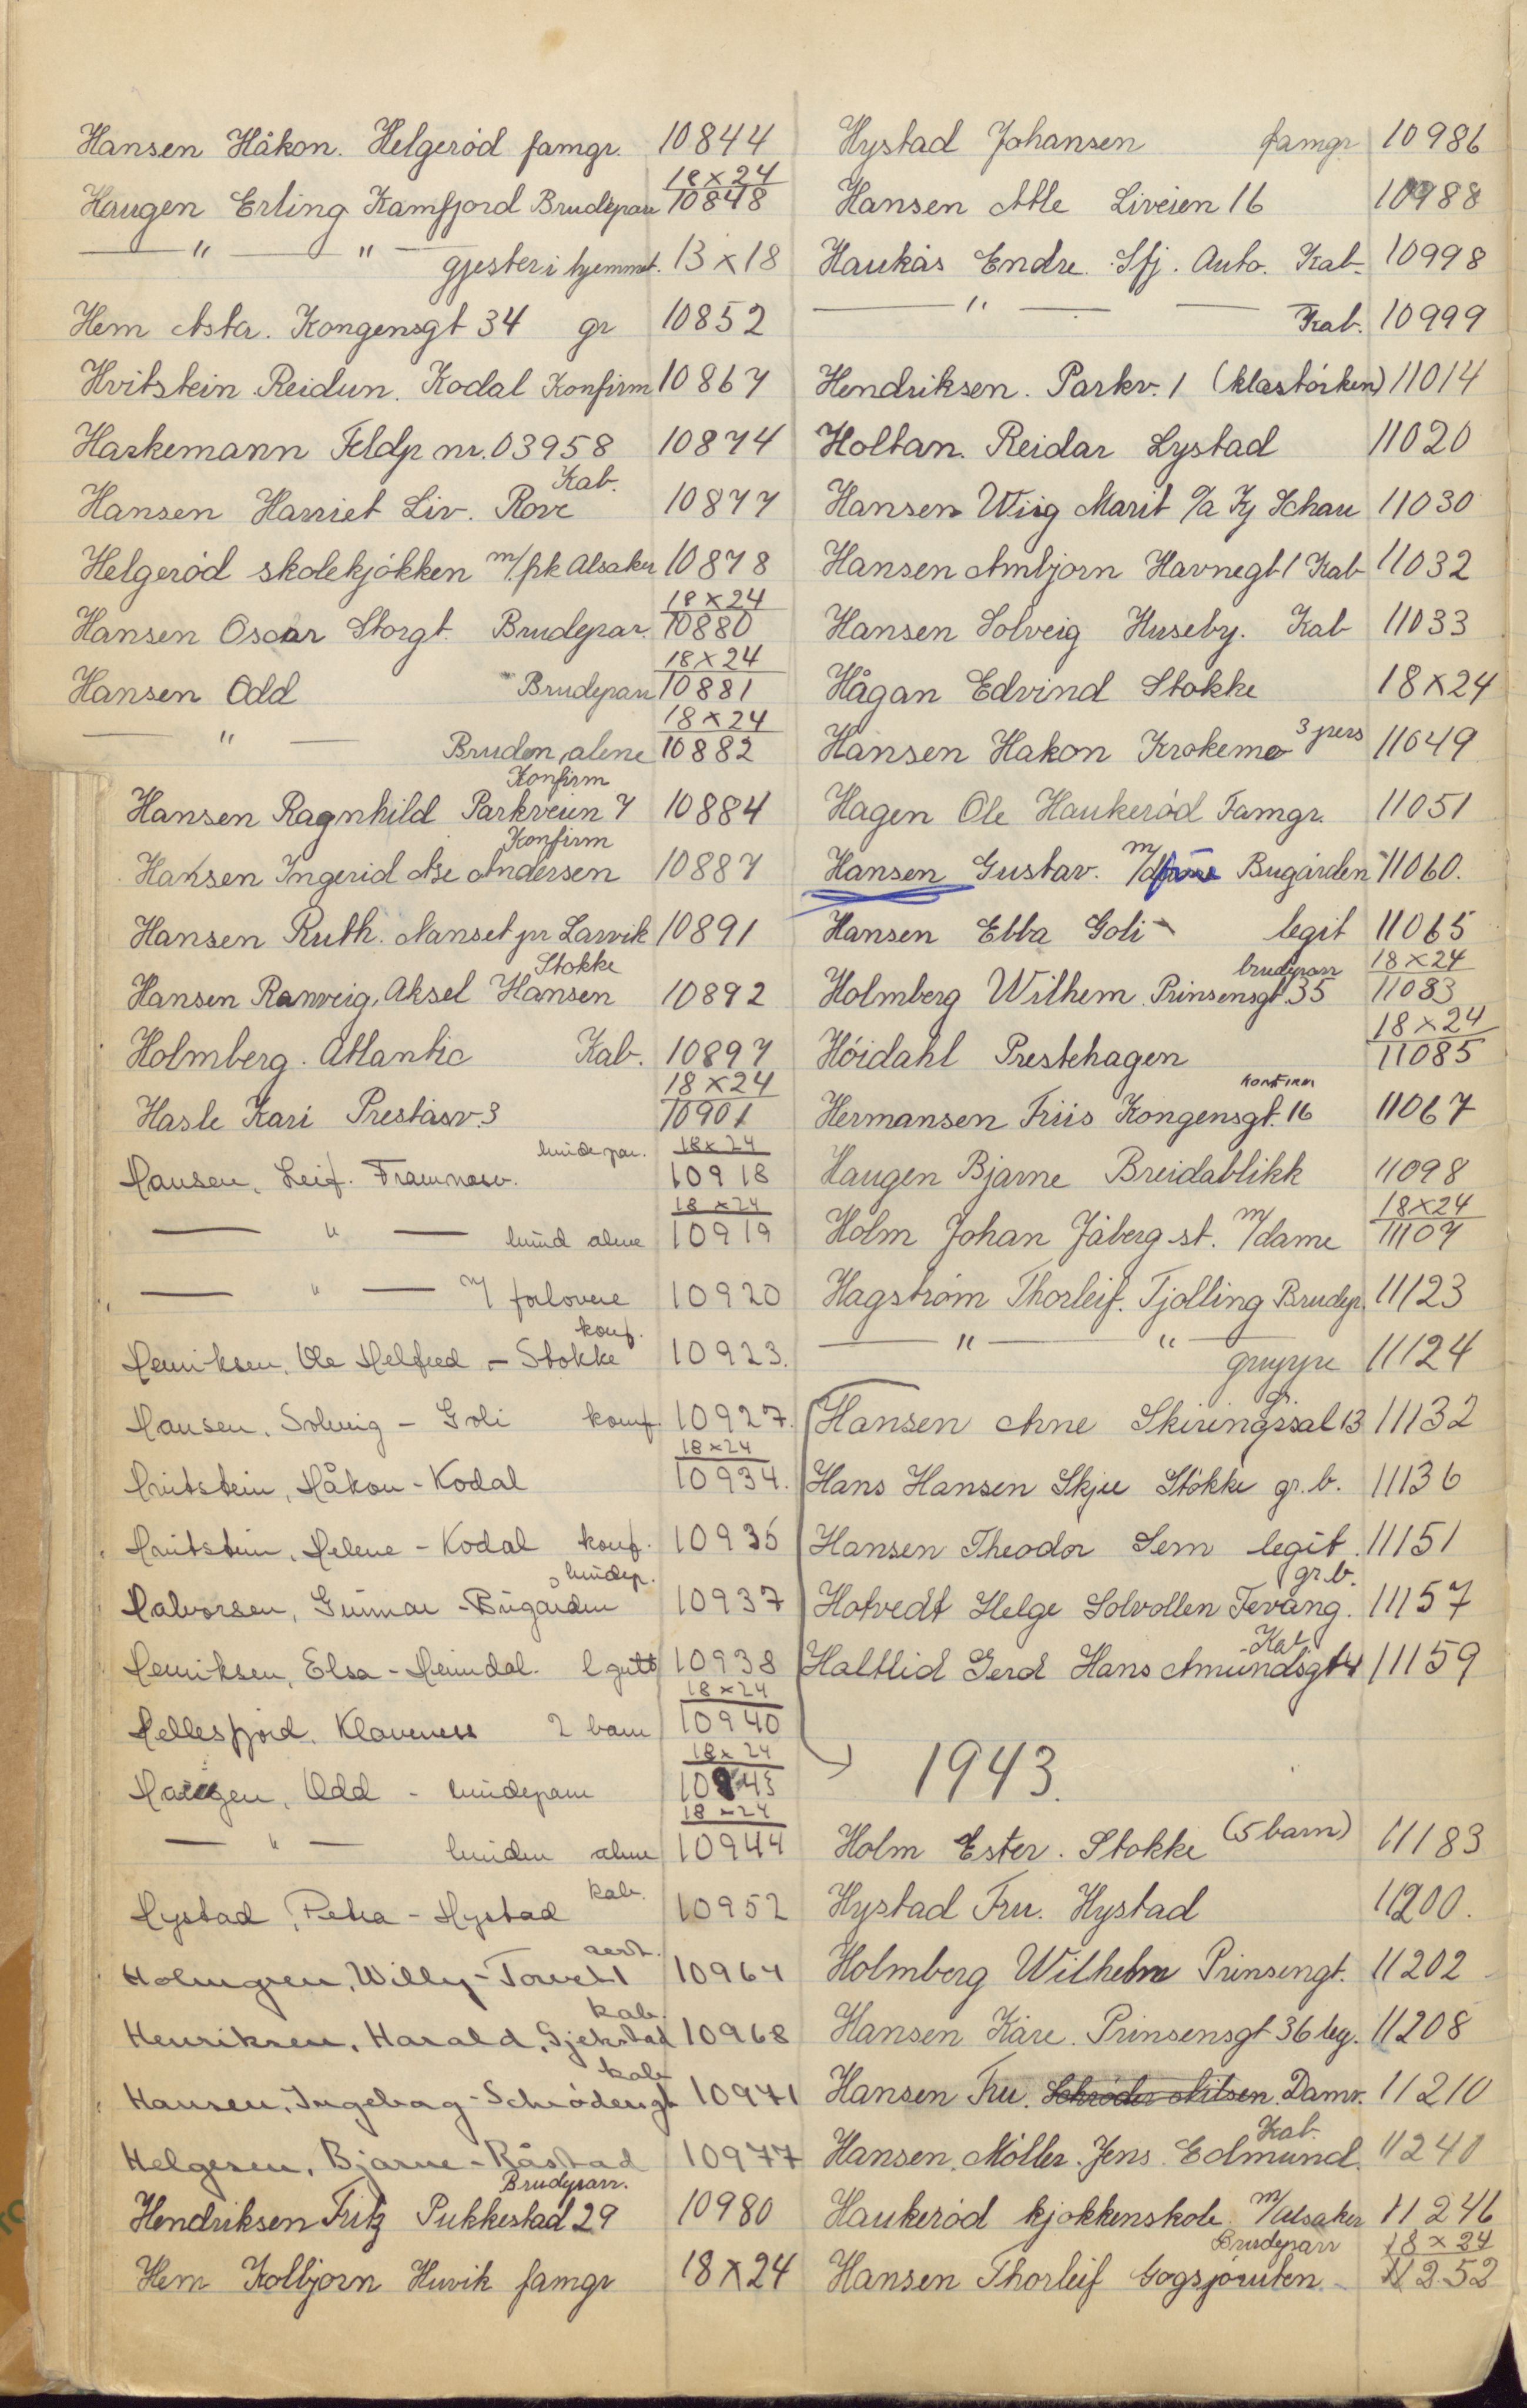 Hansen Håkon. Helgeröd famgr. 10844
Haugen Erling Kamfjord Brudepar 18x24 10848
— " — " — gjester i hjemmet. 13x18
Hem Asta. Kongensgt 34 gr 10852
Hvitstein Reidun. Kodal Konfirm 10867
Harkemann Feldp nr. 03958 10874
Hansen Harriet Liv. Rove Kab. 10877
Helgeröd skolekjökken m/frk Alsaker 10878
Hansen Oscar Storgt. Brudepar. 18x24 10880
Hansen Odd Brudepar 18x24 10881
— " — Bruden alene 18x24 10882
Hansen Ragnhild Parkveien 7 Konfirm 10884
Hansen Ingerid Åse Andersen Konfirm 10887
Hansen Ruth. Nanset pr Larvik 10891
Hansen Ranveig, Aksel Hansen Stokke 10892
Holmberg. Atlantic Kab. 10897
Hasle Kari Preståsv. 3 18x24 10901
Hansen, Leif. Framnesv. brudepar. 18x24 10918
— " — brud alene 18x24 10919
— " — m/ forlovere 10920
Henriksen, Ole Helfred - Stokke konf. 10923.
Hansen, Solveig - Goli konf. 10927.
Hvitstein, Håkon - Kodal 18x24 10934.
Hvitstein, Helene - Kodal konf. 10935
Halvorsen, Gunnar - Bugården brudep. 10937
Henriksen, Elsa - Heimdal. 1 gutt 10938
Hellesfjord. Klaveness 2 barn 18x24 10940
Haugen, Odd - brudepar 18x24 10943
— " — bruden alene 18x24 10944
Hystad, Petra - Hystad kab. 10952
Holmgren, Willy - Torvet 1 10964
Henriksen, Harald, Gjekstad kab. 10968
Hansen, Ingeborg - Schrödersgt kab 10971
Helgesen, Bjarne - Råstad 10977
Hendriksen Fritz Pukkestad 29 Brudeparr. 10980
Hem Kolbjörn Huvik famgr 18x24
Hystad Johansen famgr 10986
Hansen Atle Liveien 16 10988
Haukås Endre Sfj. Auto. Kab. 10998
— " — Kab. 10999
Hendriksen. Parkv. 1 (klastörken) 11014
Holtan. Reidar Lystad 11020
Hansen Wiig Marit %a Kj Schau 11030
Hansen Arnbjörn Havnegt 1 Kab 11032
Hansen Solveig Huseby. Kab 11033
Hågan Edvind Stokke 18x24
Hansen Håkon Krokemo 3 pers 11049
Hagen Ole Haukeröd Famgr. 11051
Hansen Gustav. m/ Bugården 11060.
Hansen Ebba Goli legit 11065
Holmberg Wilhem Prinsensgt. 35 brudeparr 18x24 11083
Höidahl Prestehagen 18x24 11085
Hermansen Friis Kongensgt. 16 konfirm 11067
Haugen Bjarne Breidablikk 11098
Holm Johan Jåberg st. m/dame 18x24 11107
Hagström Thorleif. Tjölling Brudep. 11123
— " — " — gruppe 11124
Hansen Arne Skiringssal 13 gr. 11132
Hans Hansen Skjee Stokke gr. b. 11136
Hansen Theodor Sem legit. 11151
Hotvedt Helge Solvollen Tevang. gr. b. 11157
Haltlid Gerd Hans Amundsgt 4 Kab 11159
1943.
Holm Ester. Stokke (5 barn) 11183
Hystad Fru. Hystad 11200.
Holmberg Wilhelm Prinsengt. 11202
Hansen Kåre. Prinsensgt 36 leg. 11208
Hansen Fru. Schröder Nilsen. Damv. 11210
Hansen. Möller. Jens. Edmund. Kab. 11240
Haukeröd kjökkenskole m/Alsaker 11246
Hansen Thorleif Gogsjöruten Brudeparr 18x24 11252